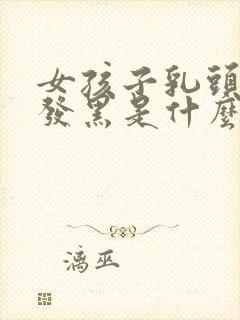 女孩子乳頭
發黑是什麼
漓巫